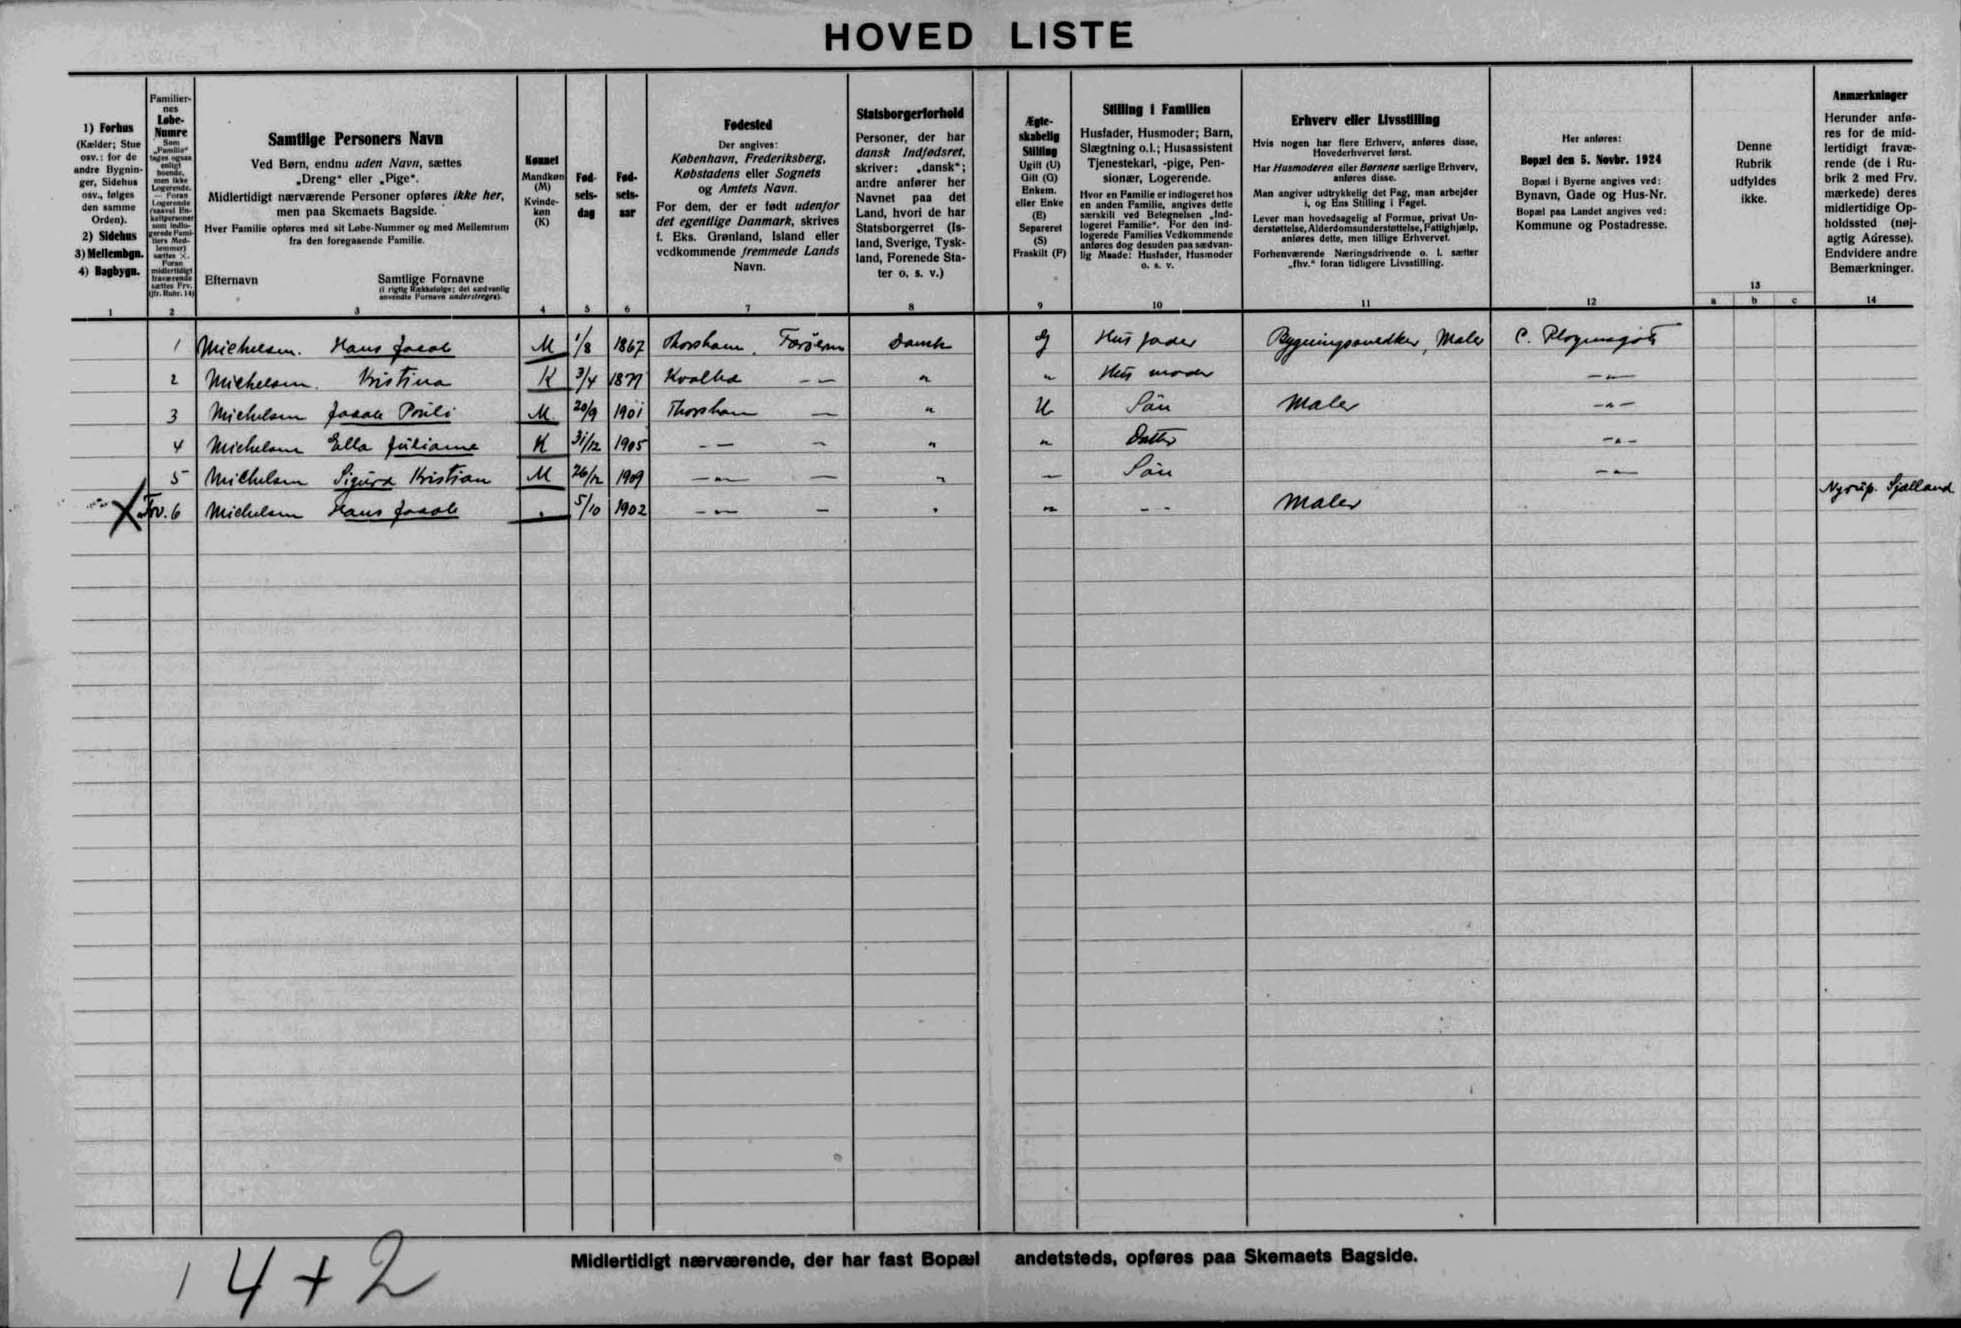 HOVED LISTE
1) Forhus
(Kælder; Stue
osv.: for de
andre Bygnin-
ger, Sidehus
osv., følges
den samme
Orden).
2) Sidehus
3) Mellembgn.
4) Bagbygn.
1
Familier-
nes
Løbe-
Numre
Som
„Familie“
tages ogsaa
enligt
boende,
men ikke
Logerende.
— Foran
Logerende
(saavel En-
keltpersoner
som indlo-
gerede Fami-
liers Med-
lemmer)
sættes X.
Foran
midlertidigt
fraværende
sættes Frv.
(jfr. Rubr. 14)
2
Samtlige Personers Navn
Ved Børn, endnu uden Navn, sættes
„Dreng“ eller „Pige“.
Midlertidigt nærværende Personer opføres ikke her,
men paa Skemaets Bagside.
Hver Familie opføres med sit Løbe-Nummer og med Mellemrum
fra den foregaaende Familie.
Efternavn
Samtlige Fornavne
(i rigtig Rækkefølge; det sædvanlig
anvendte Fornavn understreges).
3
Kønnet
Mandkøn
(M)
Kvinde-
køn
(K)
4
Fød-
sels-
dag
5
Fød-
sels-
aar
6
Fødested
Der angives:
København, Frederiksberg,
Købstadens eller Sognets
og Amtets Navn.
For dem, der er født udenfor
det egentlige Danmark, skrives
f. Eks. Grønland, Island eller
vedkommende fremmede Lands
Navn.
7
Statsborgerforhold
Personer, der har
dansk Indfødsret,
skriver: „dansk“;
andre anfører her
Navnet paa det
Land, hvori de har
Statsborgerret (Is-
land, Sverige, Tysk-
land, Forenede Sta-
ter o. s. v.)
8
Ægte-
skabelig
Stilling
Ugift (U)
Gift (G)
Enkem.
eller Enke
(E)
Separeret
(S)
Fraskilt (F)
9
Stilling i Familien
Husfader, Husmoder; Barn,
Slægtning o.l.; Husassistent
Tjenestekarl, -pige, Pen-
sionær, Logerende.
Hvor en Familie er indlogeret hos
en anden Familie, angives dette
særskilt ved Betegnelsen „Ind-
logeret Familie“. For den ind-
logerede Families Vedkommende
anføres dog desuden paa sædvan-
lig Maade: Husfader, Husmoder
o. s. v.
10
Erhverv eller Livsstilling
Hvis nogen har flere Erhverv, anføres disse,
Hovederhvervet først.
Har Husmoderen eller Børnene særlige Erhverv,
anføres disse.
Man angiver udtrykkelig det Fag, man arbejder
i, og Ens Stilling i Faget.
Lever man hovedsagelig af Formue, privat Un-
derstøttelse, Alderdomsunderstøttelse, Fattighjælp,
anføres dette, men tillige Erhvervet.
Forhenværende Næringsdrivende o. l. sætter
„fhv.“ foran tidligere Livsstilling.
11
Her anføres:
Bopæl den 5. Novbr. 1924
Bopæl i Byerne angives ved:
Bynavn, Gade og Hus-Nr.
Bopæl paa Landet angives ved:
Kommune og Postadresse.
12
Denne
Rubrik
udfyldes
ikke.
13
a b c
Anmærkninger
Herunder anfø-
res for de mid-
lertidigt fravæ-
rende (de i Ru-
brik 2 med Frv.
mærkede) deres
midlertidige Op-
holdssted (nøj-
agtig Adresse).
Endvidere andre
Bemærkninger.
14
1 Michelsen. Hans Jacob M 1/8 1867 Thorshavn, Færøerne Dansk G Hus fader Bygningssnedker, Maler C. Ployensgöta
2 Michelsen. Kristina K 3/4 1871 Kvalbø — — " " Hus moder — " —
3 Michelsen Jacob Pouli M 20/9 1901 Thorshavn — " U Sön Maler — " —
4 Michelsen Ella Juliane K 31/12 1905 — — — " " Datter — " —
5 Michelsen Sigurd Kristian M 26/12 1909 — " — — " — Sön — " —
X Frv. 6 Michelsen Hans Jacob " 5/10 1902 — " — — " " - - Maler Nyrup. Sjælland
Midlertidigt nærværende, der har fast Bopæl andetsteds, opføres paa Skemaets Bagside.
4 + 2